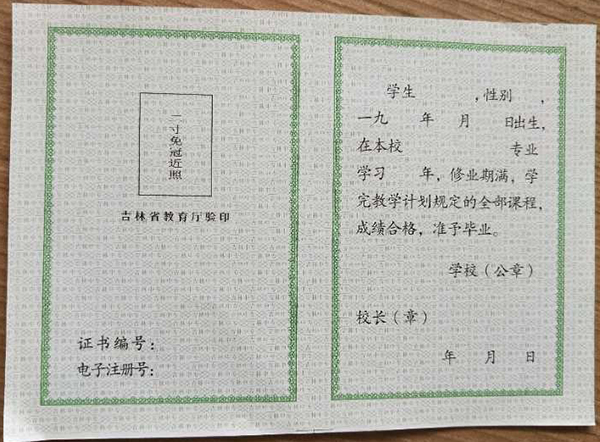 二寸免冠近照
吉林省教育厅验印
证书编号：
电子注册号：
学生 ，性别 ，
一九 年 月 日出生，
在本校 专业
学习 年，修业期满，学
完教学计划规定的全部课程，
成绩合格，准予毕业。
学校（公章）
校长（章）
年 月 日